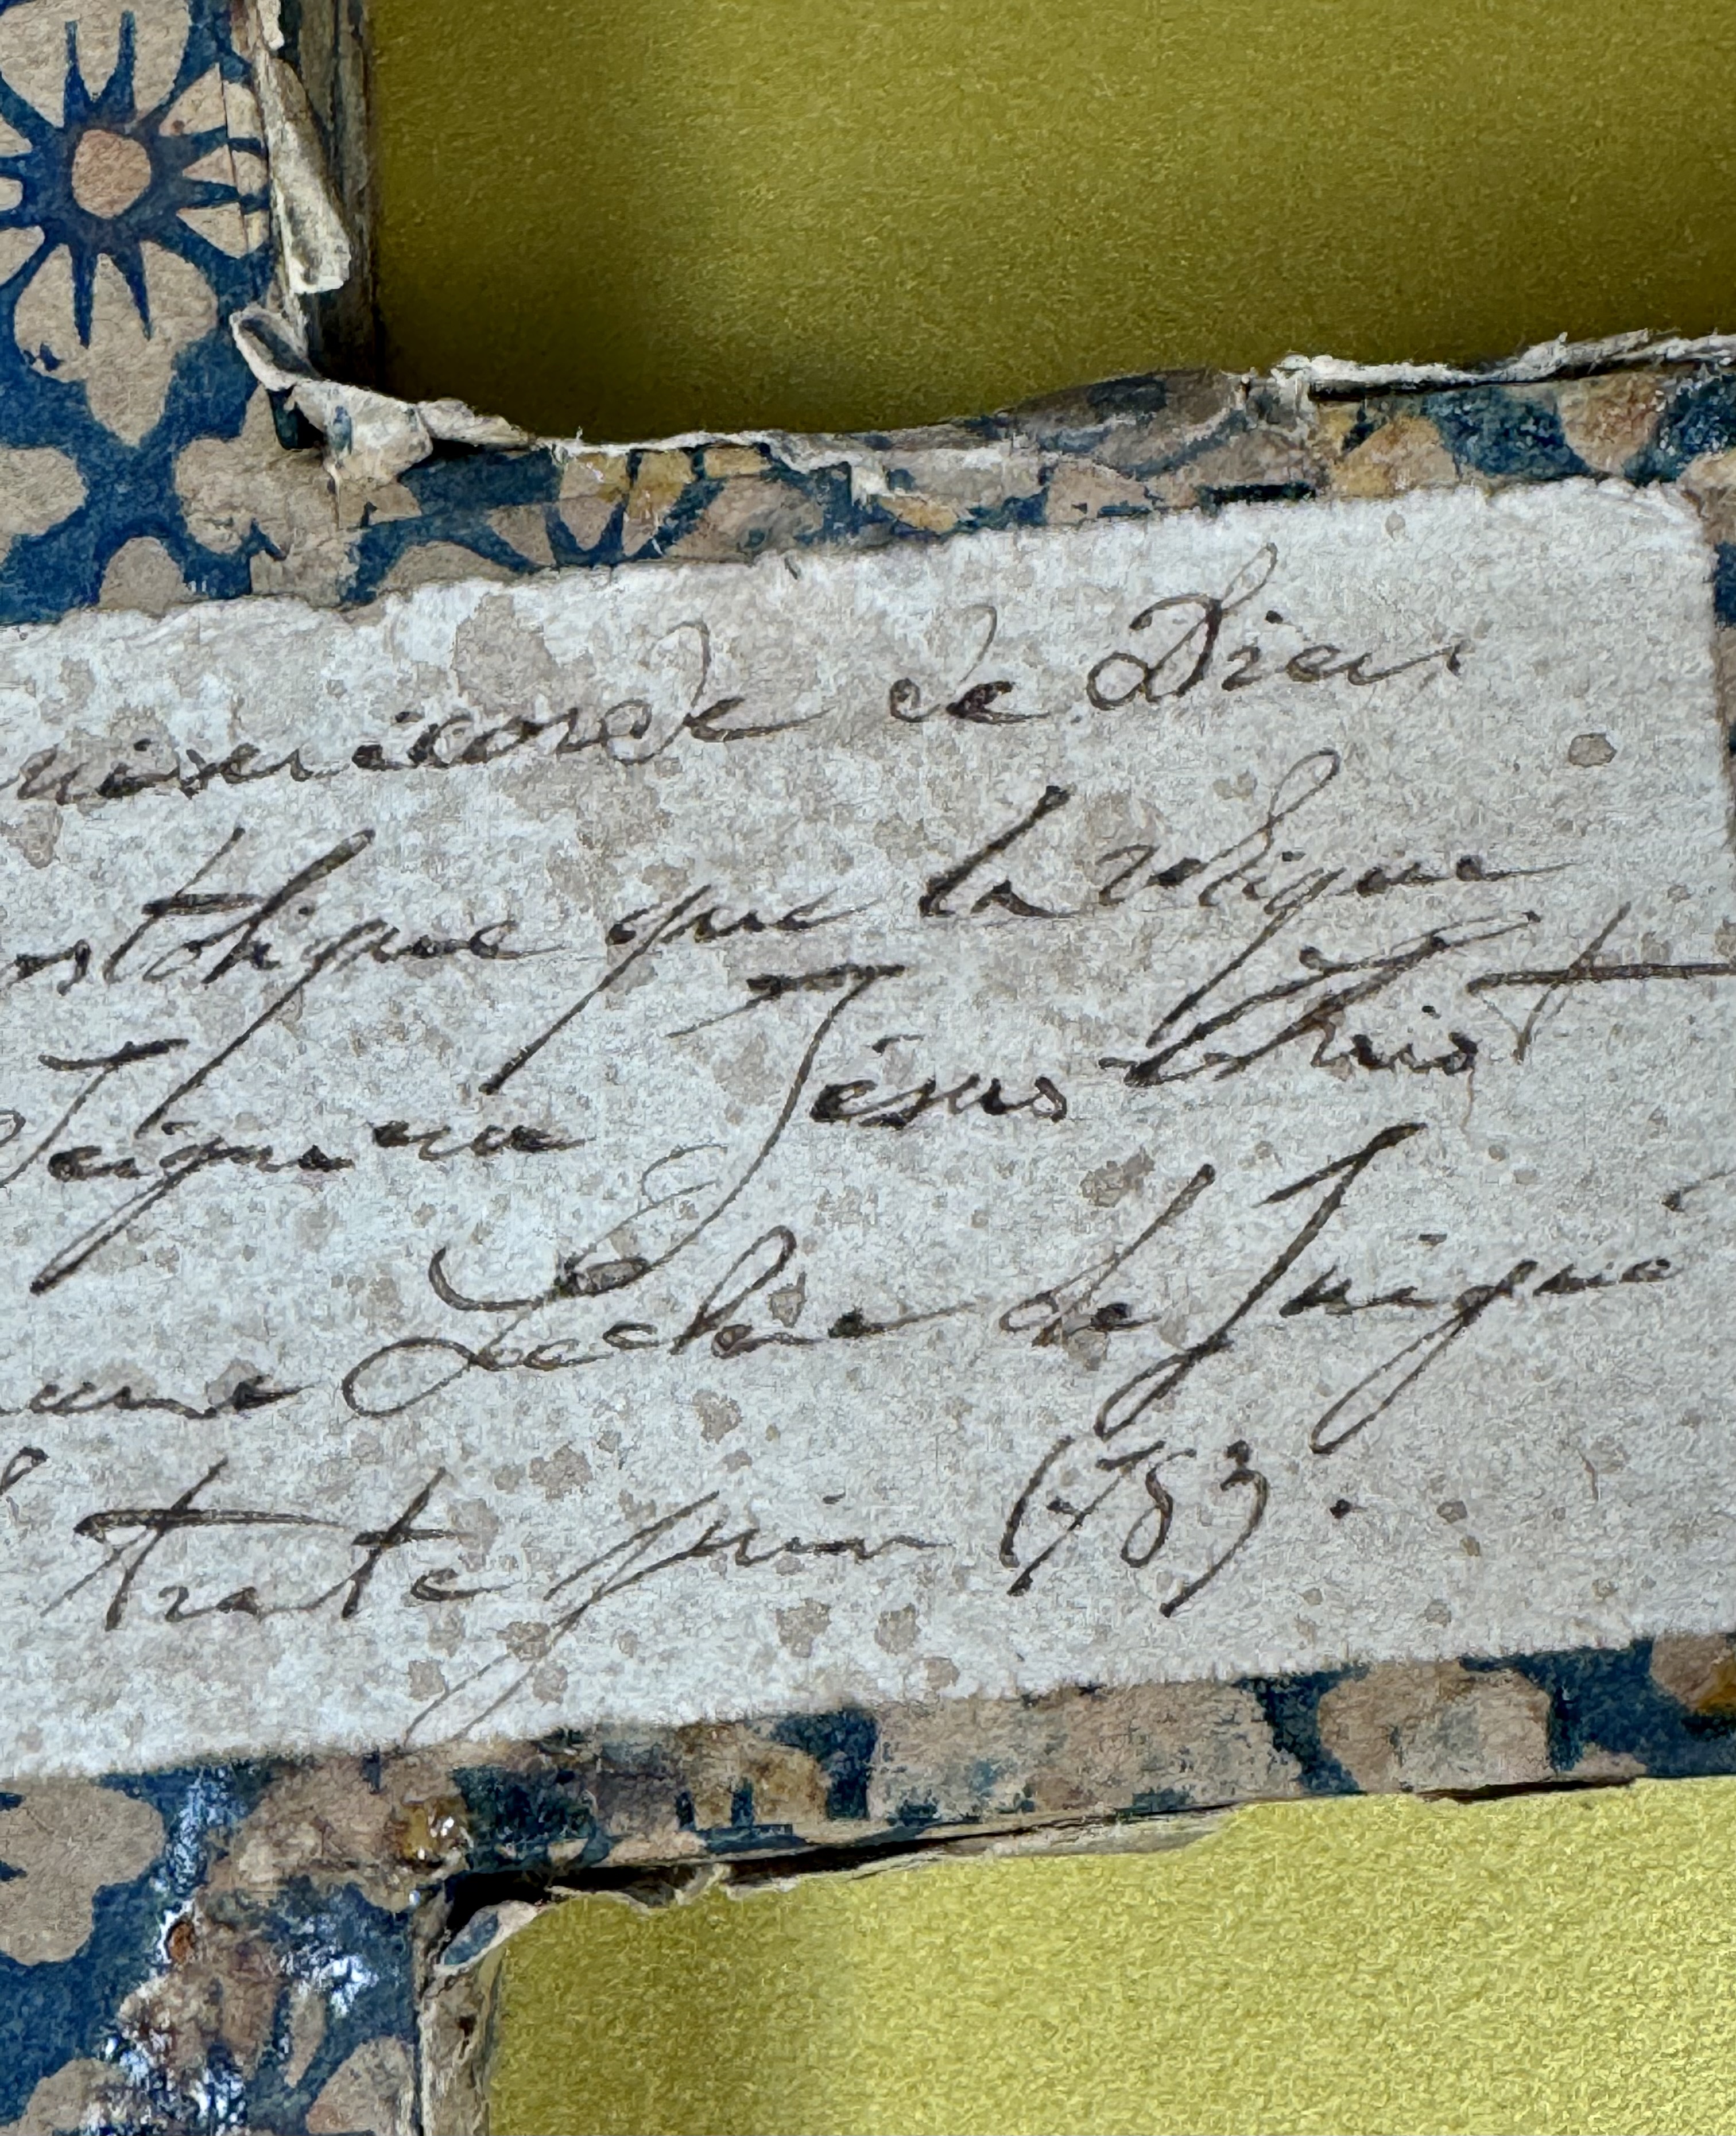 misericorde de Dieu
ostolique que la relique
Seigneur Jésus Christ
Leclere de Juigné
trente juin 1783.